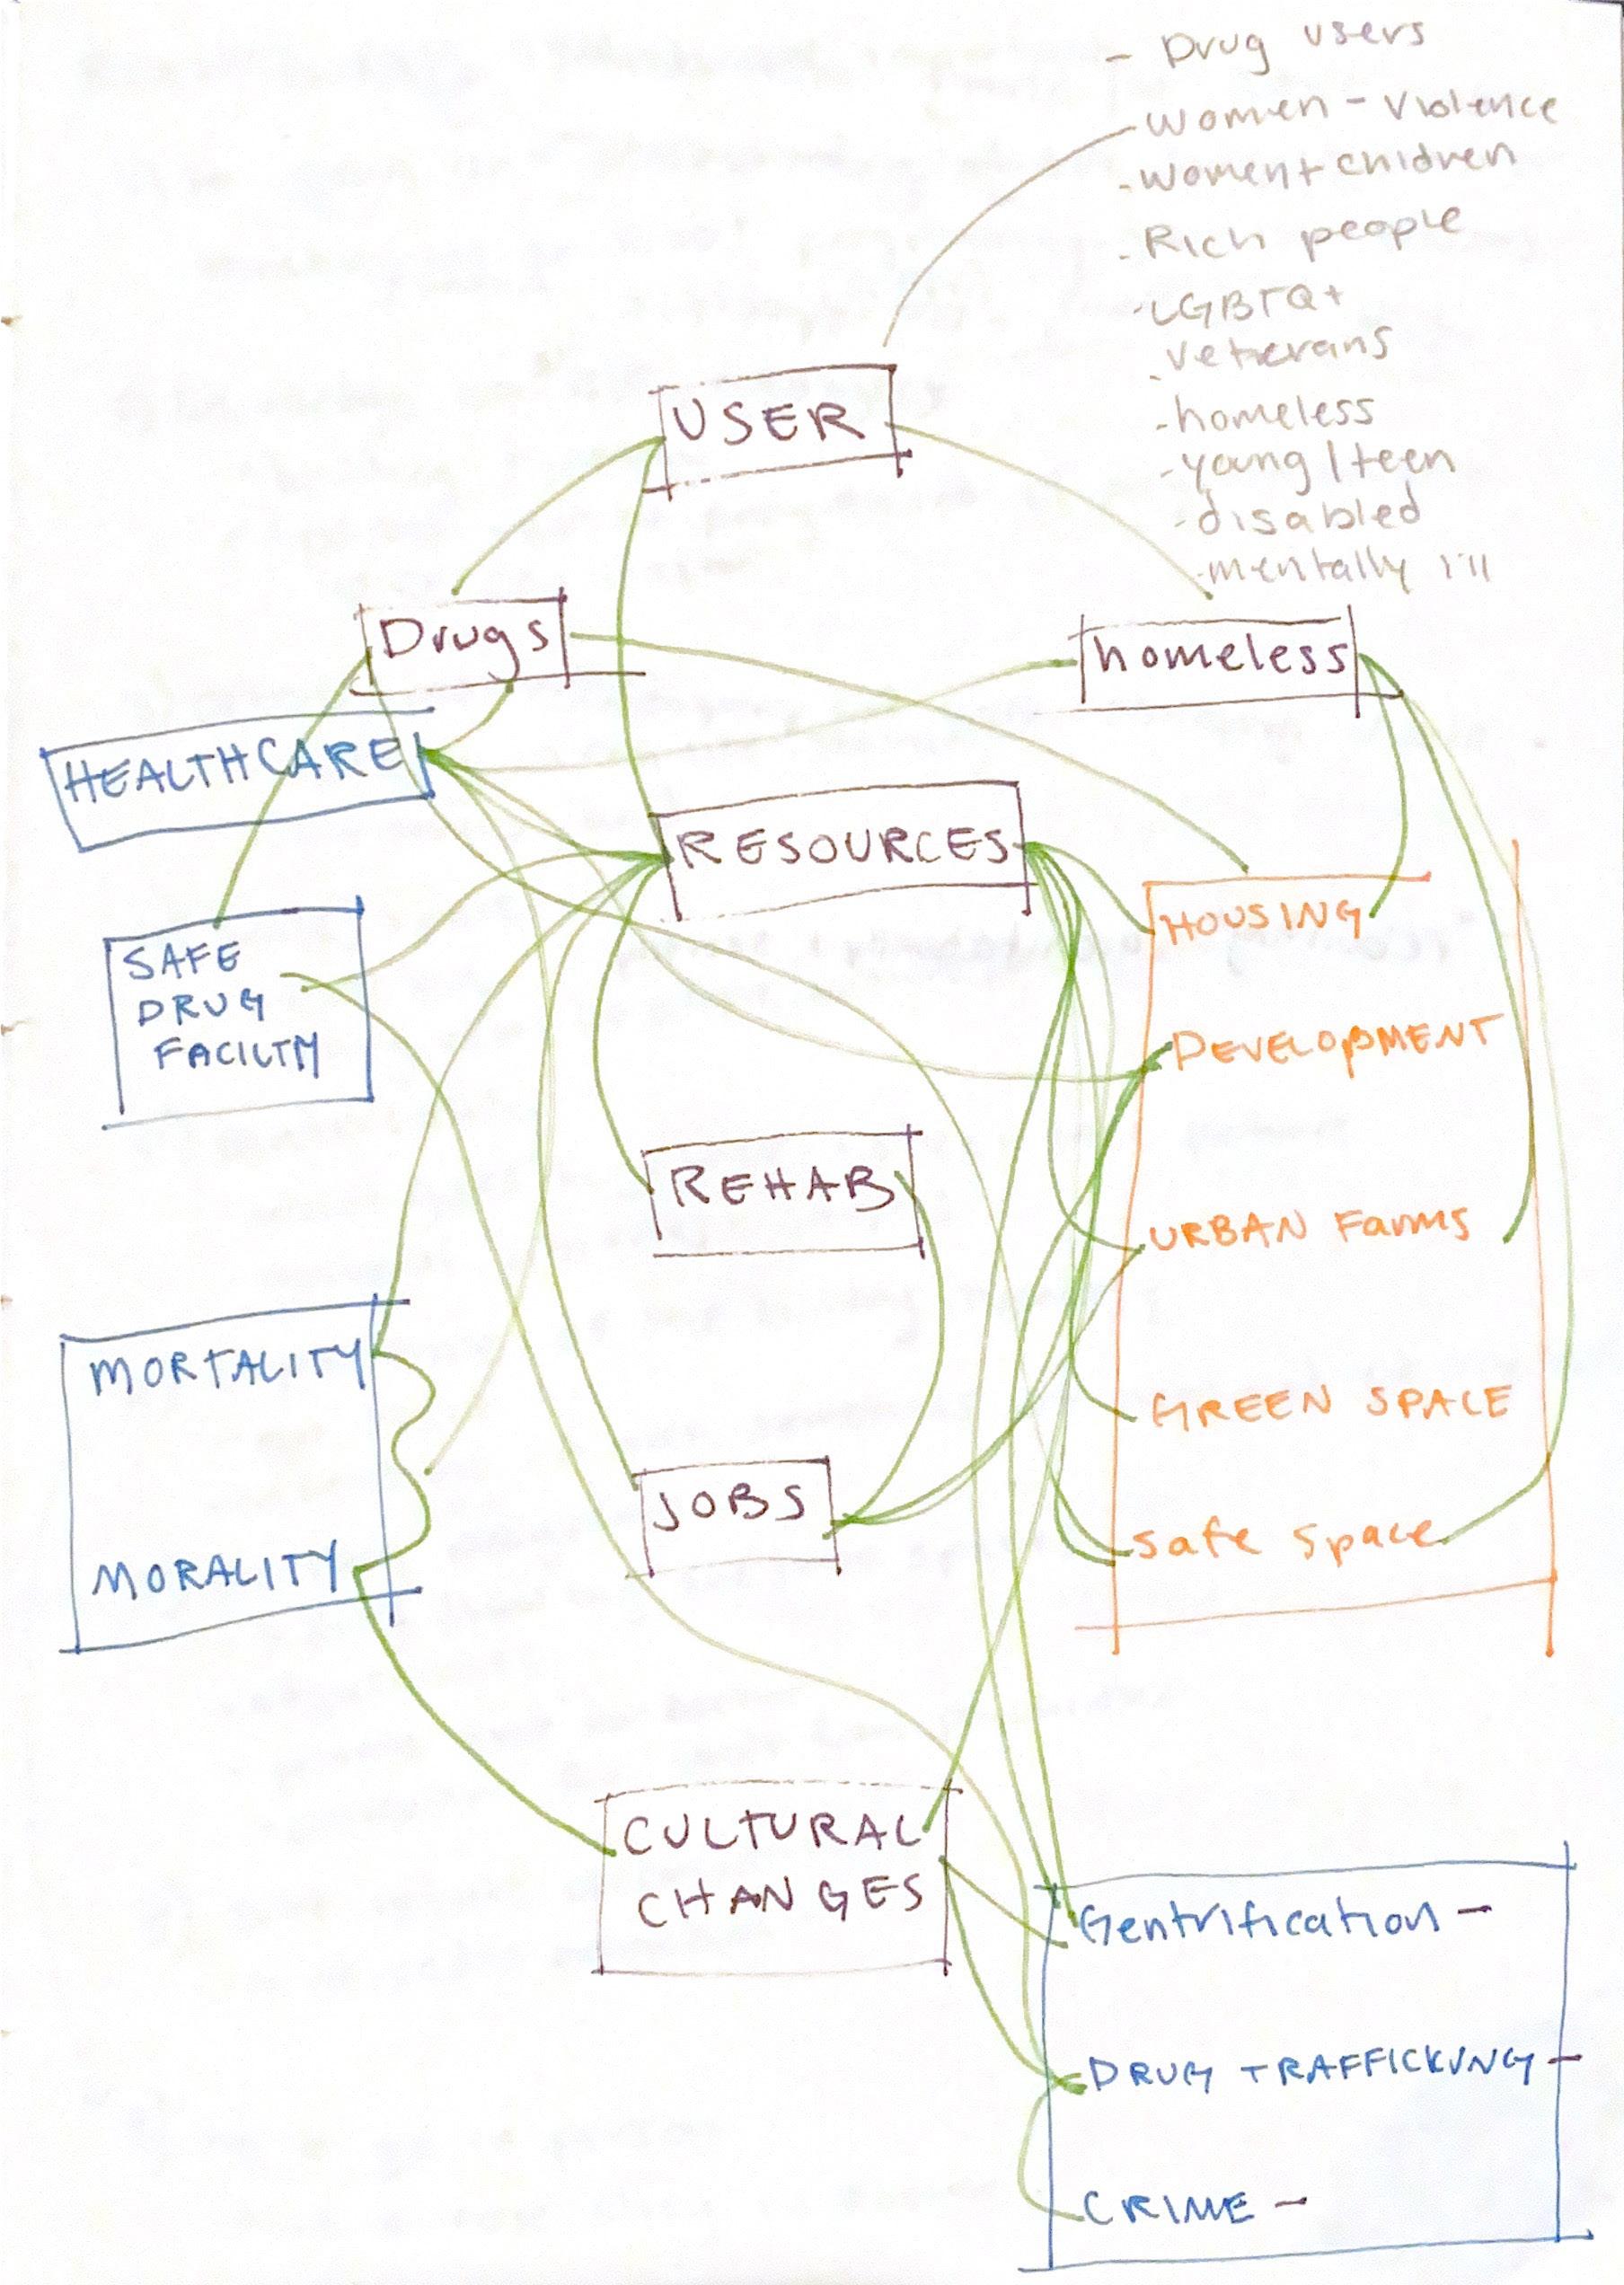 - Drug users
- women - violence
- women + children
- Rich people
- LGBTQ+
- veterans
- homeless
- young / teen
- disabled
- mentally ill
USER
Drugs
homeless
HEALTHCARE
RESOURCES
HOUSING
SAFE
DRUG
FACILTY
DEVELOPMENT
REHAB
URBAN Farms
MORTALITY
GREEN SPACE
JOBS
safe space
MORALITY
CULTURAL
CHANGES
Gentrification -
DRUG TRAFFICKING -
CRIME -